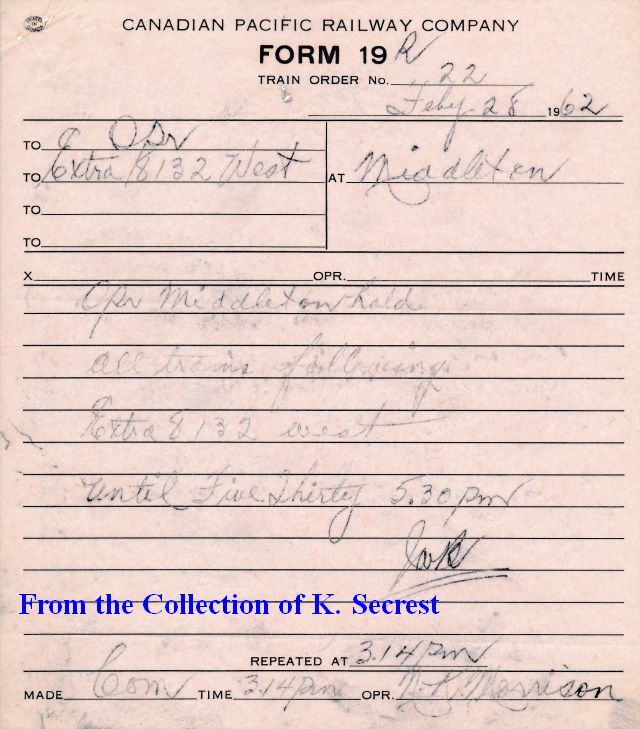 CANADIAN PACIFIC RAILWAY COMPANY
FORM 19 R
TRAIN ORDER No. 22
Feby 28 1962
TO C Opr
TO Extra 8132 West AT Middleton
TO
TO
X OPR. TIME
Opr Middleton hold
all trains following
Extra 8132 west
until Five Thirty 5.30 pm
From the Collection of K. Secrest
REPEATED AT 3.14 pm
MADE Com TIME 3.14 pm OPR. Morrison